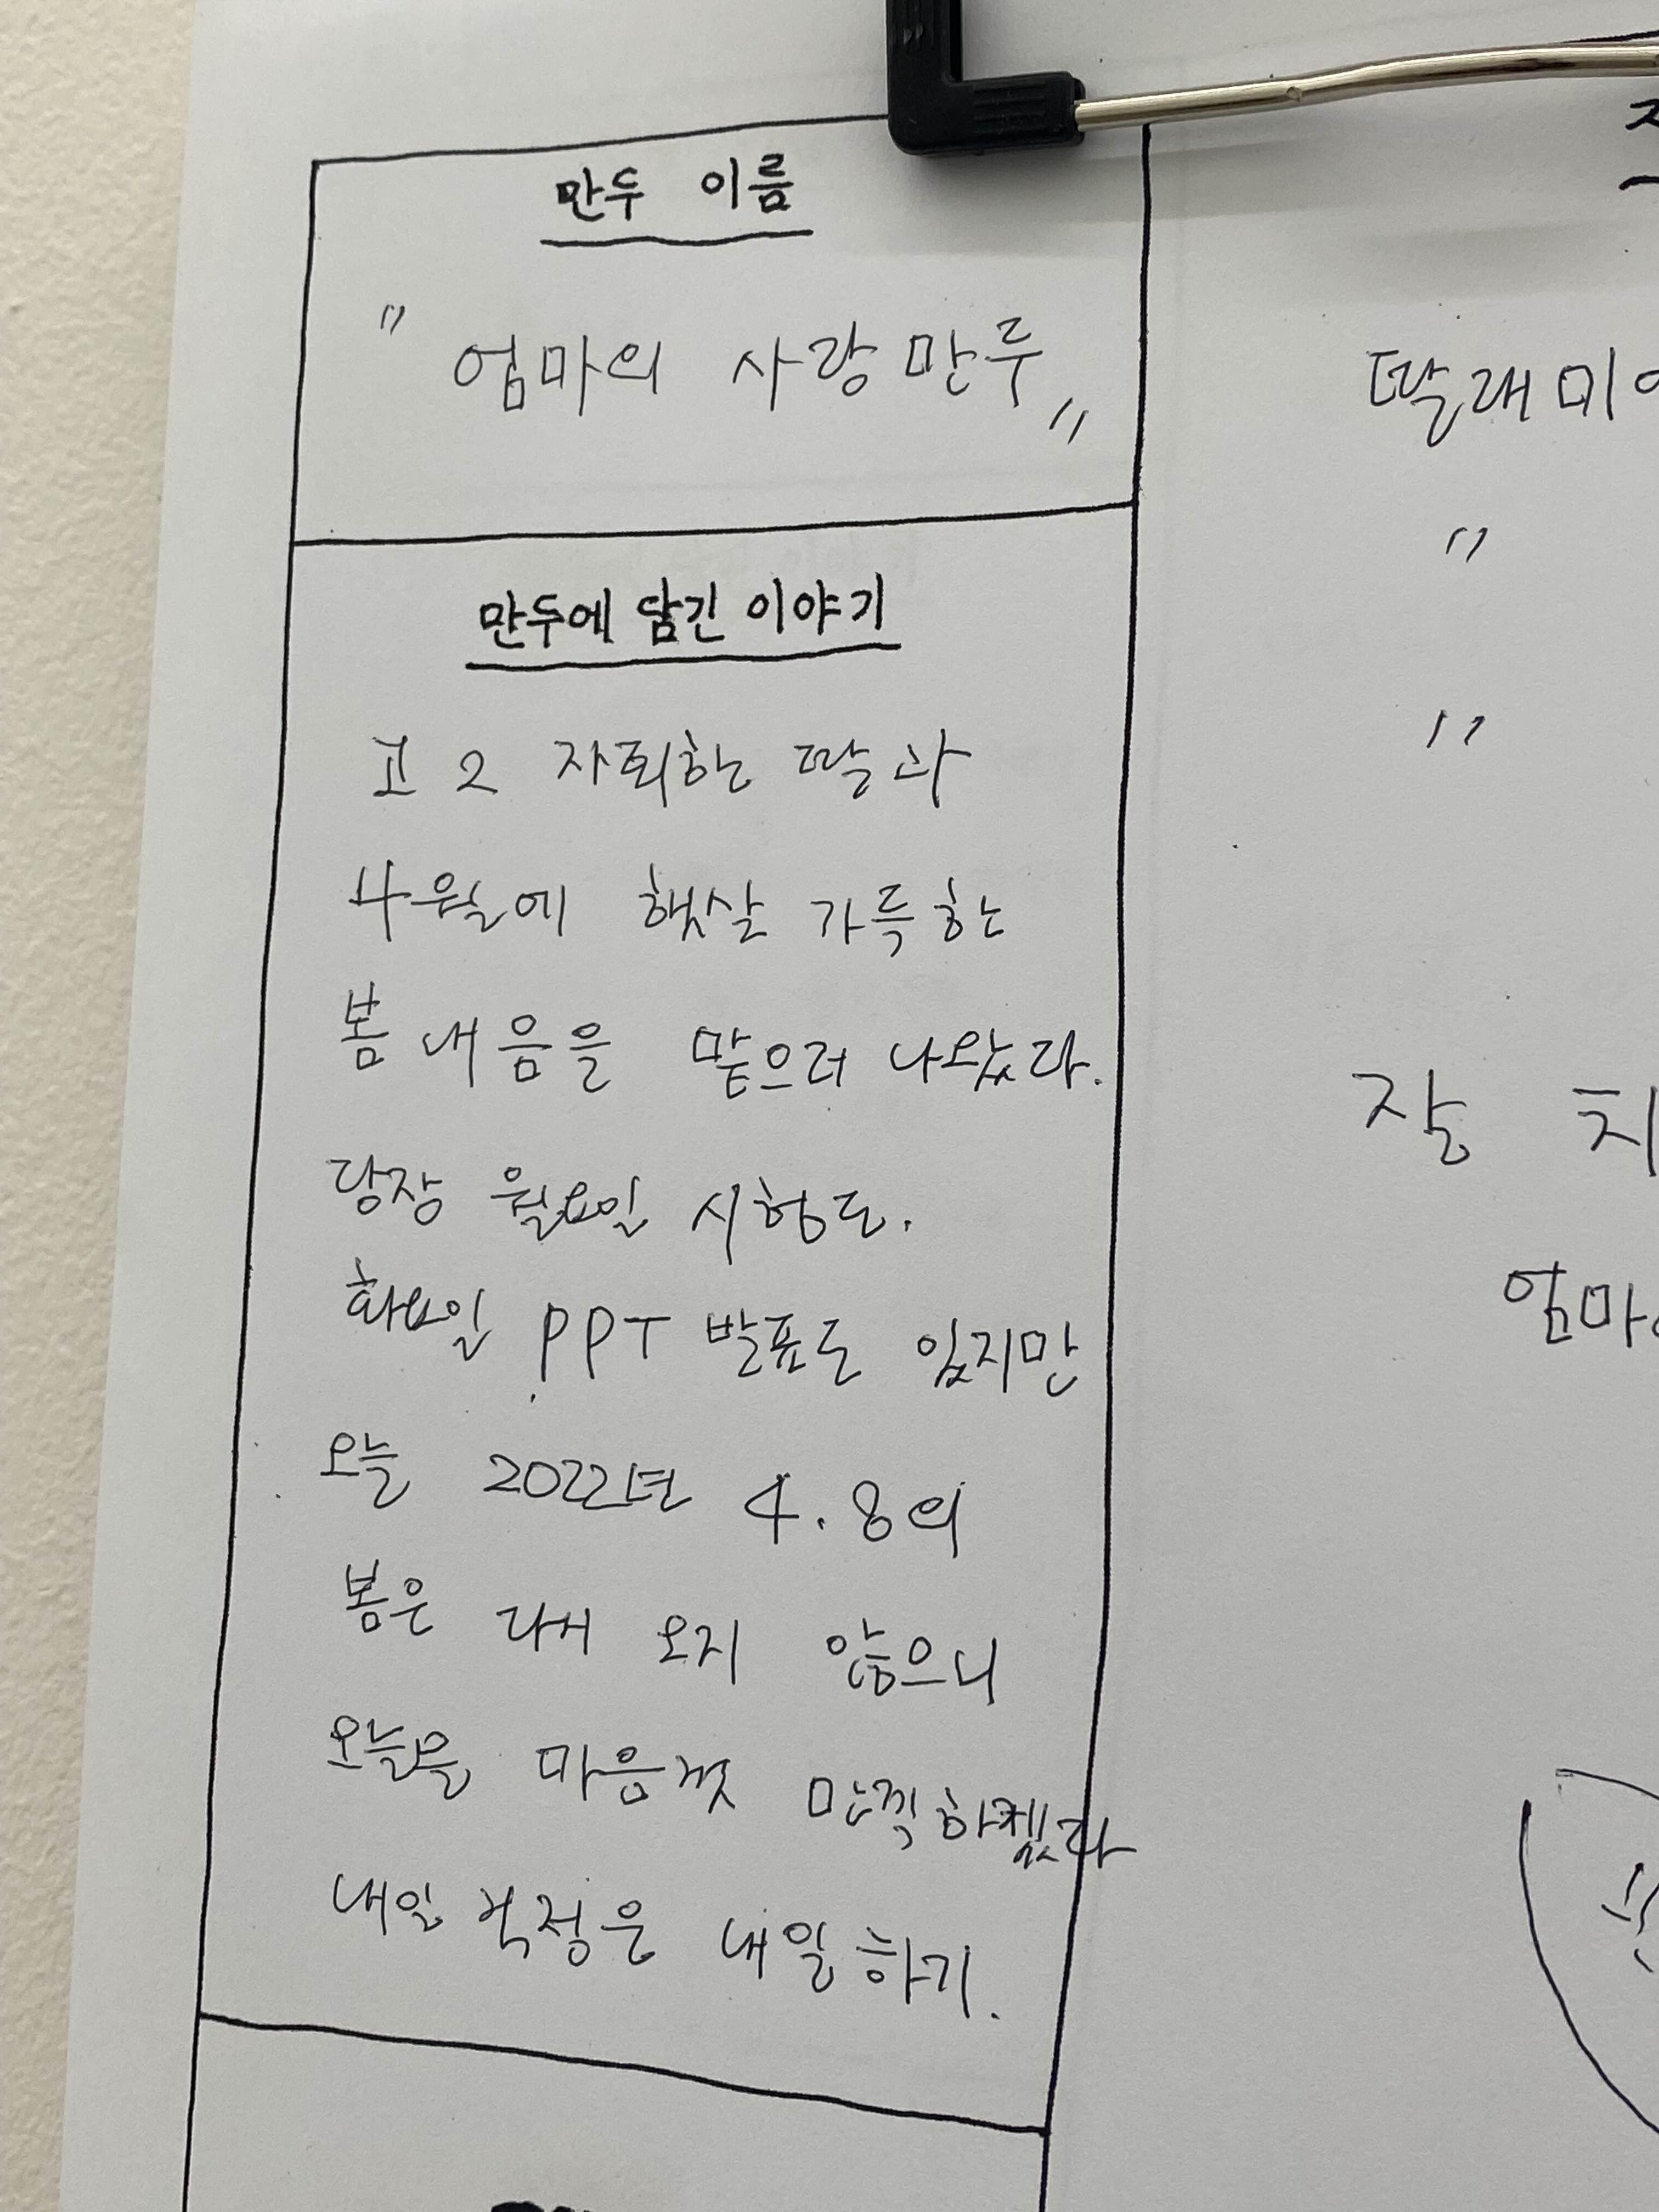 만두 이름
" 엄마의 사랑만두 "
만두에 담긴 이야기
고2 자퇴한 딸과
4월에 햇살 가득한
봄내음을 맡으러 나왔다.
당장 월요일 시험도.
화요일 PPT 발표도 있지만
오늘 2022년 4.8의
봄은 다시 오지 않으니
오늘을 마음껏 만끽하겠다
내일 걱정은 내일하기.
딸래미
"
"
잘 치
엄마